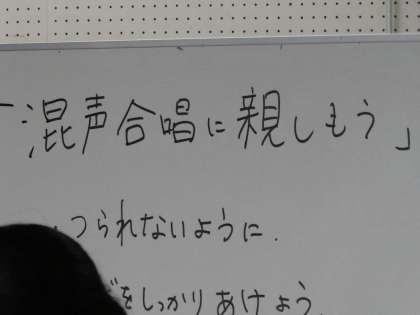 「混声合唱に親しもう」
・つられないように.
をしっかりあけよう.